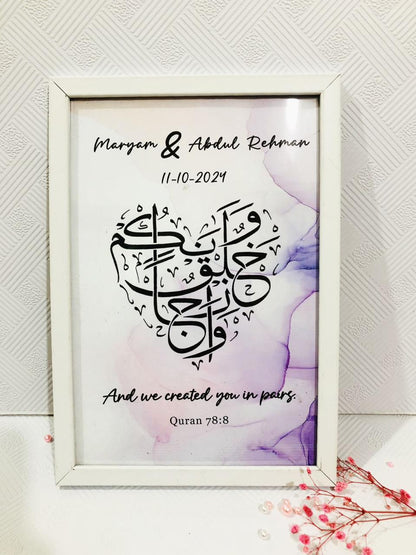 Maryam & Abdul Rehman
11-10-2024
وَخَلَقْنَاكُمْ أَزْوَاجًا
And we created you in pairs.
Quran 78:8